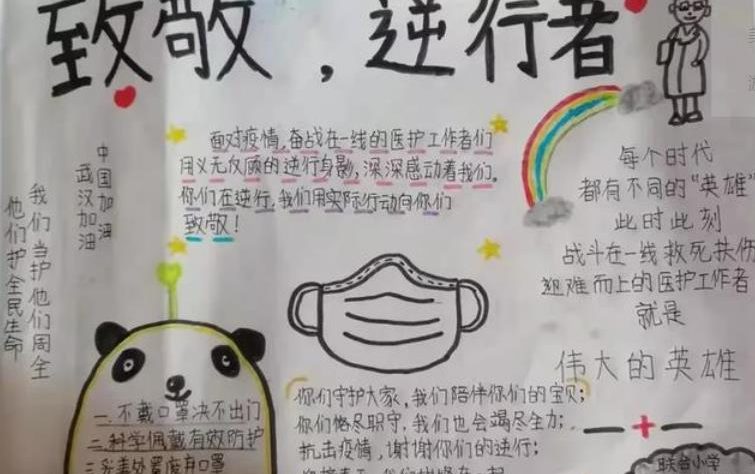 致敬，逆行者
面对疫情，奋战在一线的医护工作者们
用义无反顾的逆行身影，深深感动着我们。
你们在逆行，我们用实际行动向你们
致敬！
中国加油
武汉加油
我们当护他们周全
他们护全民生命
每个时代
都有不同的“英雄”
此时此刻
战斗在一线救死扶伤
迎难而上的医护工作者
就是
伟大的英雄
一、不戴口罩决不出门
二、科学佩戴有效防护
三、妥善处置废弃口罩
你们守护大家，我们陪伴你们的宝贝；
你们恪尽职守，我们也会竭尽全力；
抗击疫情，谢谢你们的逆行；